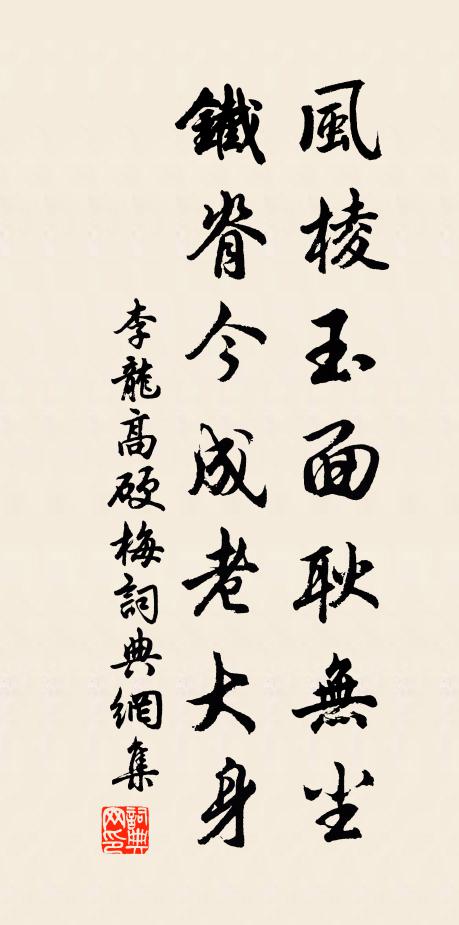 風棱玉面耿無尘
鐵脊今成老大身
李龍高硬梅詞典網集
詞典
网印